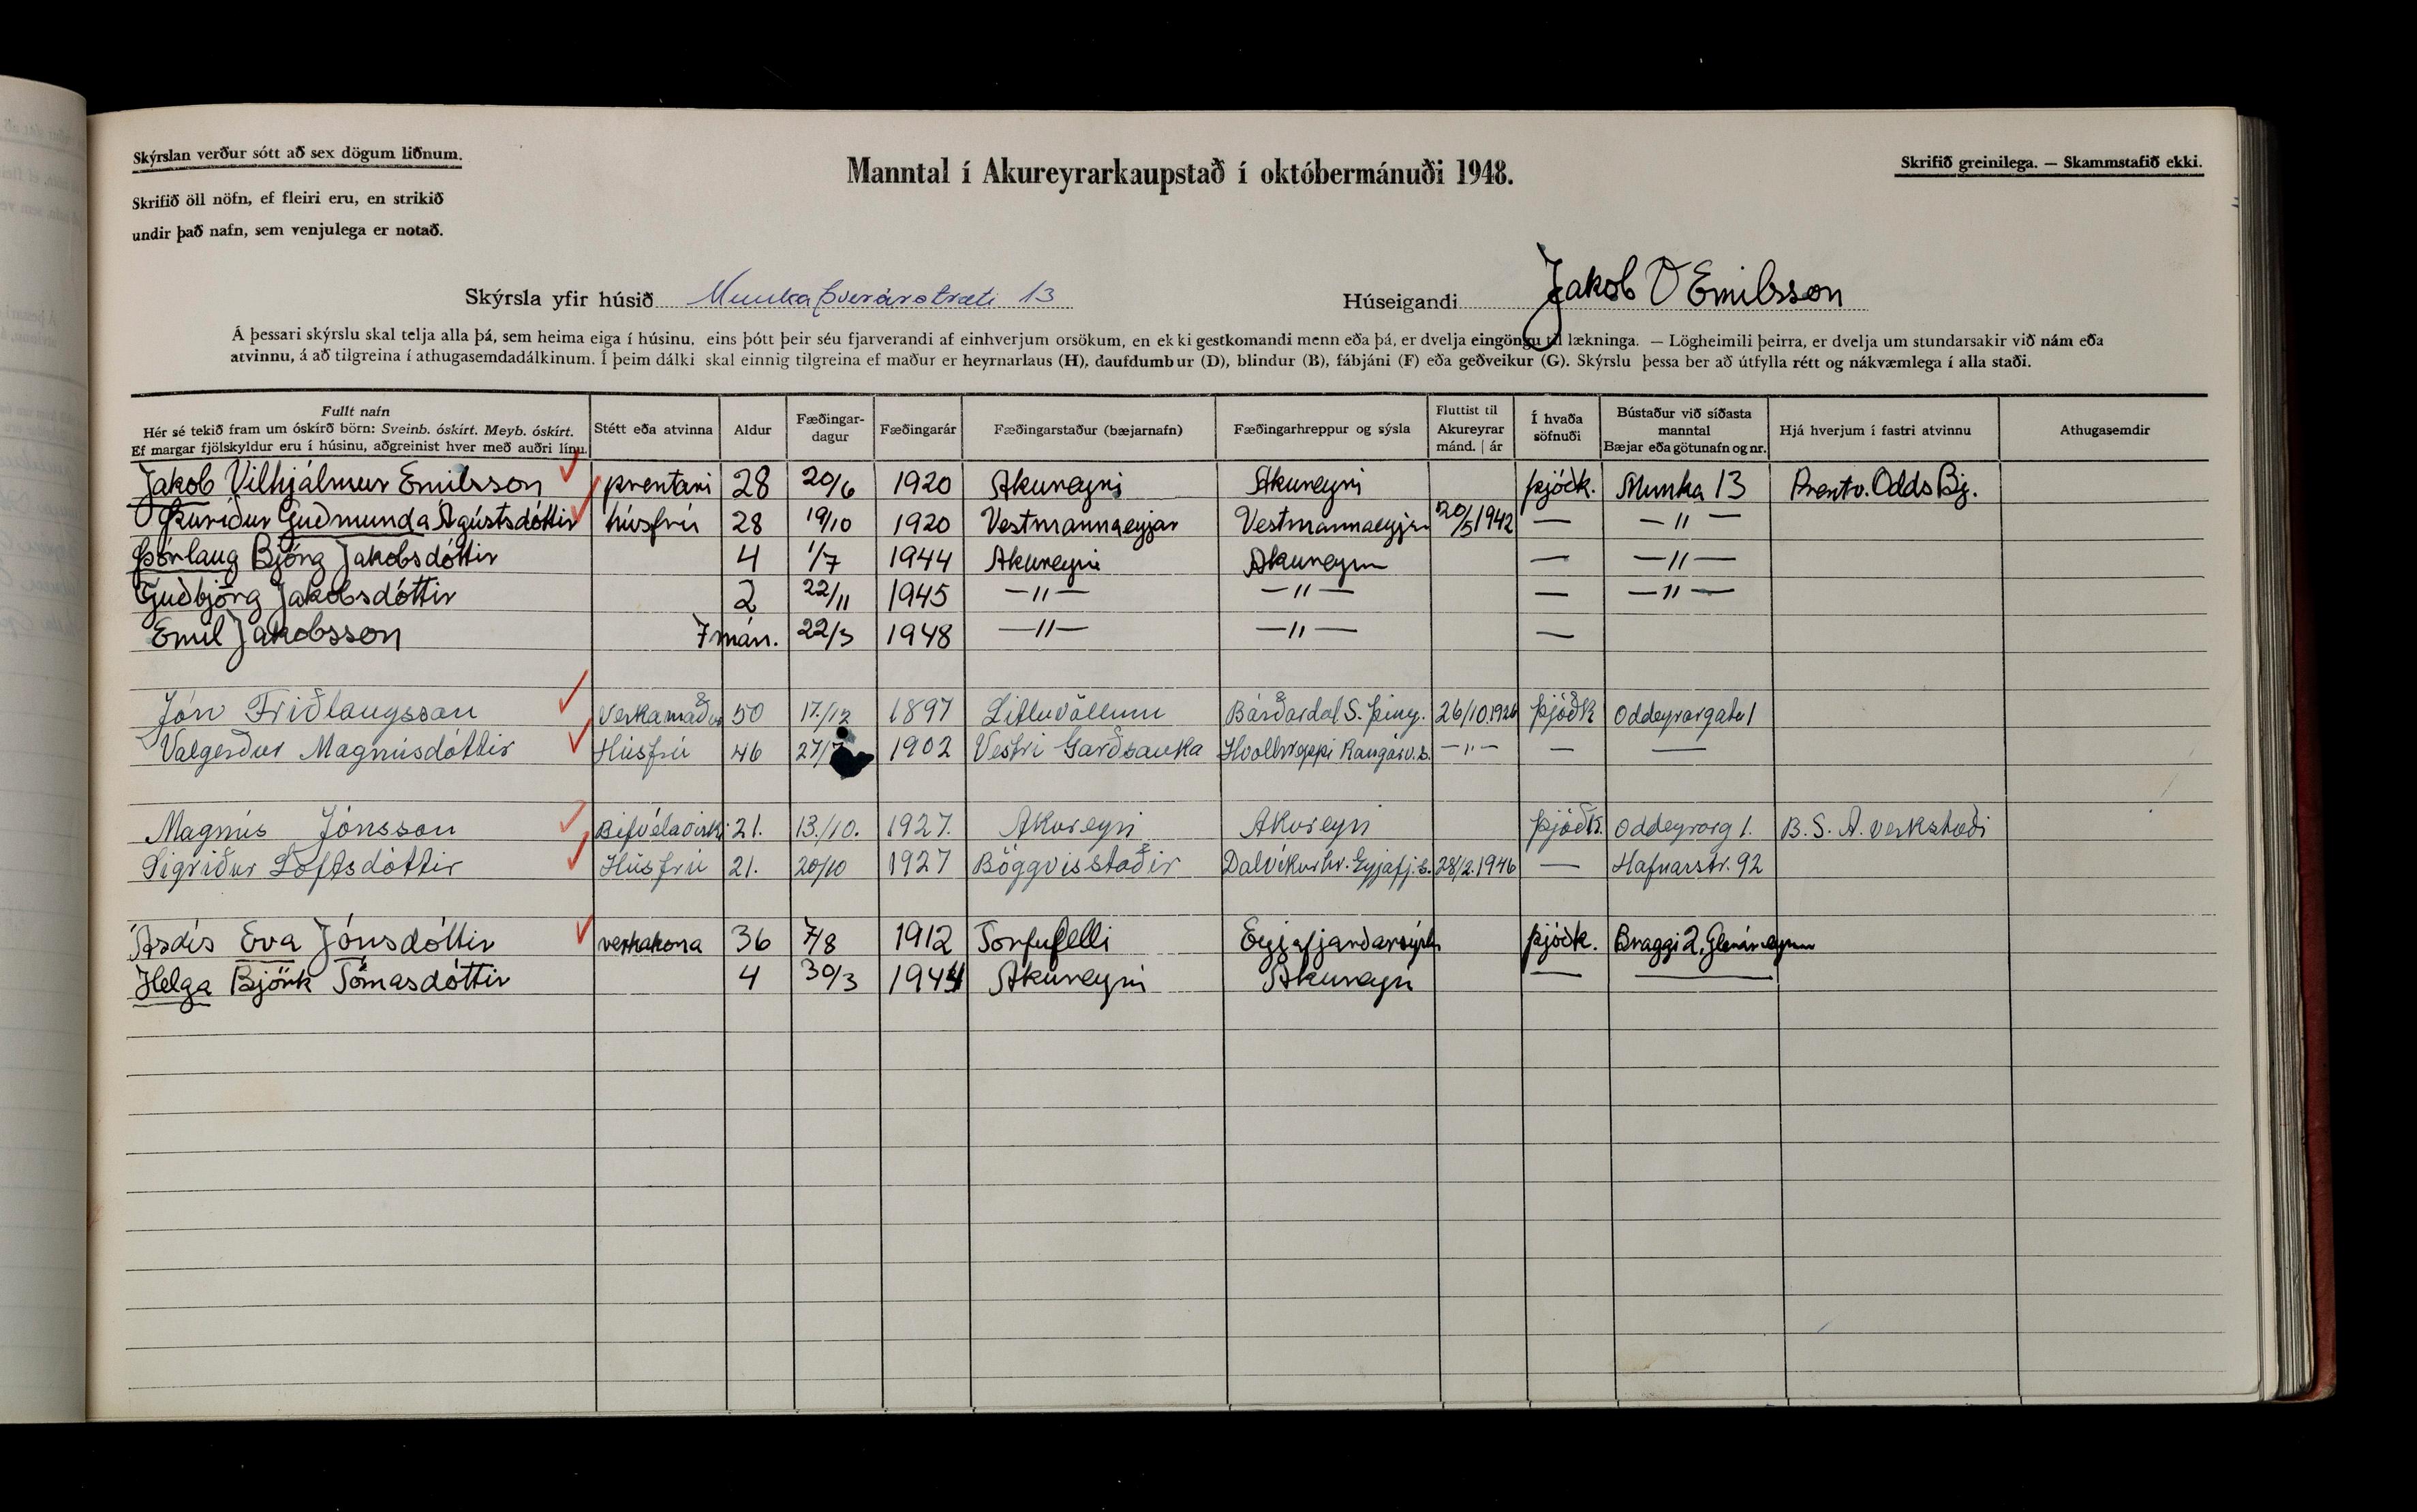 Skýrslan verður sótt að sex dögum liðnum.
Skrifið öll nöfn, ef fleiri eru, en strikið
undir það nafn, sem venjulega er notað.
Manntal í Akureyrarkaupstað í októbermánuði 1948.
Skrifið greinilega. — Skammstafið ekki.
Skýrsla yfir húsið Munkaþverárstræti 13
Húseigandi Jakob V Emilsson
Á þessari skýrslu skal telja alla þá, sem heima eiga í húsinu, eins þótt þeir séu fjarverandi af einhverjum orsökum, en ekki gestkomandi menn eða þá, er dvelja eingöngu til lækninga. — Lögheimili þeirra, er dvelja um stundarsakir við nám eða
atvinnu, á að tilgreina í athugasemdadálkinum. Í þeim dálki skal einnig tilgreina ef maður er heyrnarlaus (H), daufdumbur (D), blindur (B), fábjáni (F) eða geðveikur (G). Skýrslu þessa ber að útfylla rétt og nákvæmlega í alla staði.
Fullt nafn
Hér sé tekið fram um óskírð börn: Sveinb. óskírt. Meyb. óskírt.
Ef margar fjölskyldur eru í húsinu, aðgreinist hver með auðri línu.
Stétt eða atvinna
Aldur
Fæðingar-
dagur
Fæðingarár
Fæðingarstaður (bæjarnafn)
Fæðingarhreppur og sýsla
Fluttist til
Akureyrar
mánd. | ár
Í hvaða
söfnuði
Bústaður við síðasta
manntal
Bæjar eða götunafn og nr.
Hjá hverjum í fastri atvinnu
Athugasemdir
Jakob Vilhjálmur Emilsson prentari 28 20/6 1920 Akureyri Akureyri þjóðk. Munka 13 Prentv. Odds Bj.
Þuríður Guðmunda Ágústsdóttir húsfrú 28 19/10 1920 Vestmannaeyjar Vestmannaeyjar 20/5 1942 — — " —
Þórlaug Björg Jakobsdóttir 4 1/7 1944 Akureyri Akureyri — — " —
Guðbjörg Jakobsdóttir 2 22/11 1945 — " — — " — — — " —
Emil Jakobsson 7 mán. 22/3 1948 — " — — " — —
Jón Friðlaugsson Verkamaður 50 17./12 1897 Litluvöllum Bárðardal. S. Þing. 26/10.1926 þjóðk Oddeyrargata 1
Valgerður Magnúsdóttir Húsfrú 46 27/7 1902 Vestri Garðsauka Hvolhreppi Rangárv.s. — " — — —
Magnús Jónsson Bifvélavirki 21. 13./10. 1927. Akureyri Akureyri þjóðk. Oddeyrarg 1. B. S. A. verkstæði
Sigríður Loftsdóttir Húsfrú 21. 20/10 1927 Böggvisstaðir Dalvíkurhr. Eyjafj.s. 28/2.1946 — Hafnarstr. 92
Ásdís Eva Jónsdóttir verkakona 36 7/8 1912 Torfufelli Eyjafjarðarsýslu þjóðk. Braggi 2, Gleráreyrum
Helga Björk Tómasdóttir 4 30/3 1944 Akureyri Akureyri — —